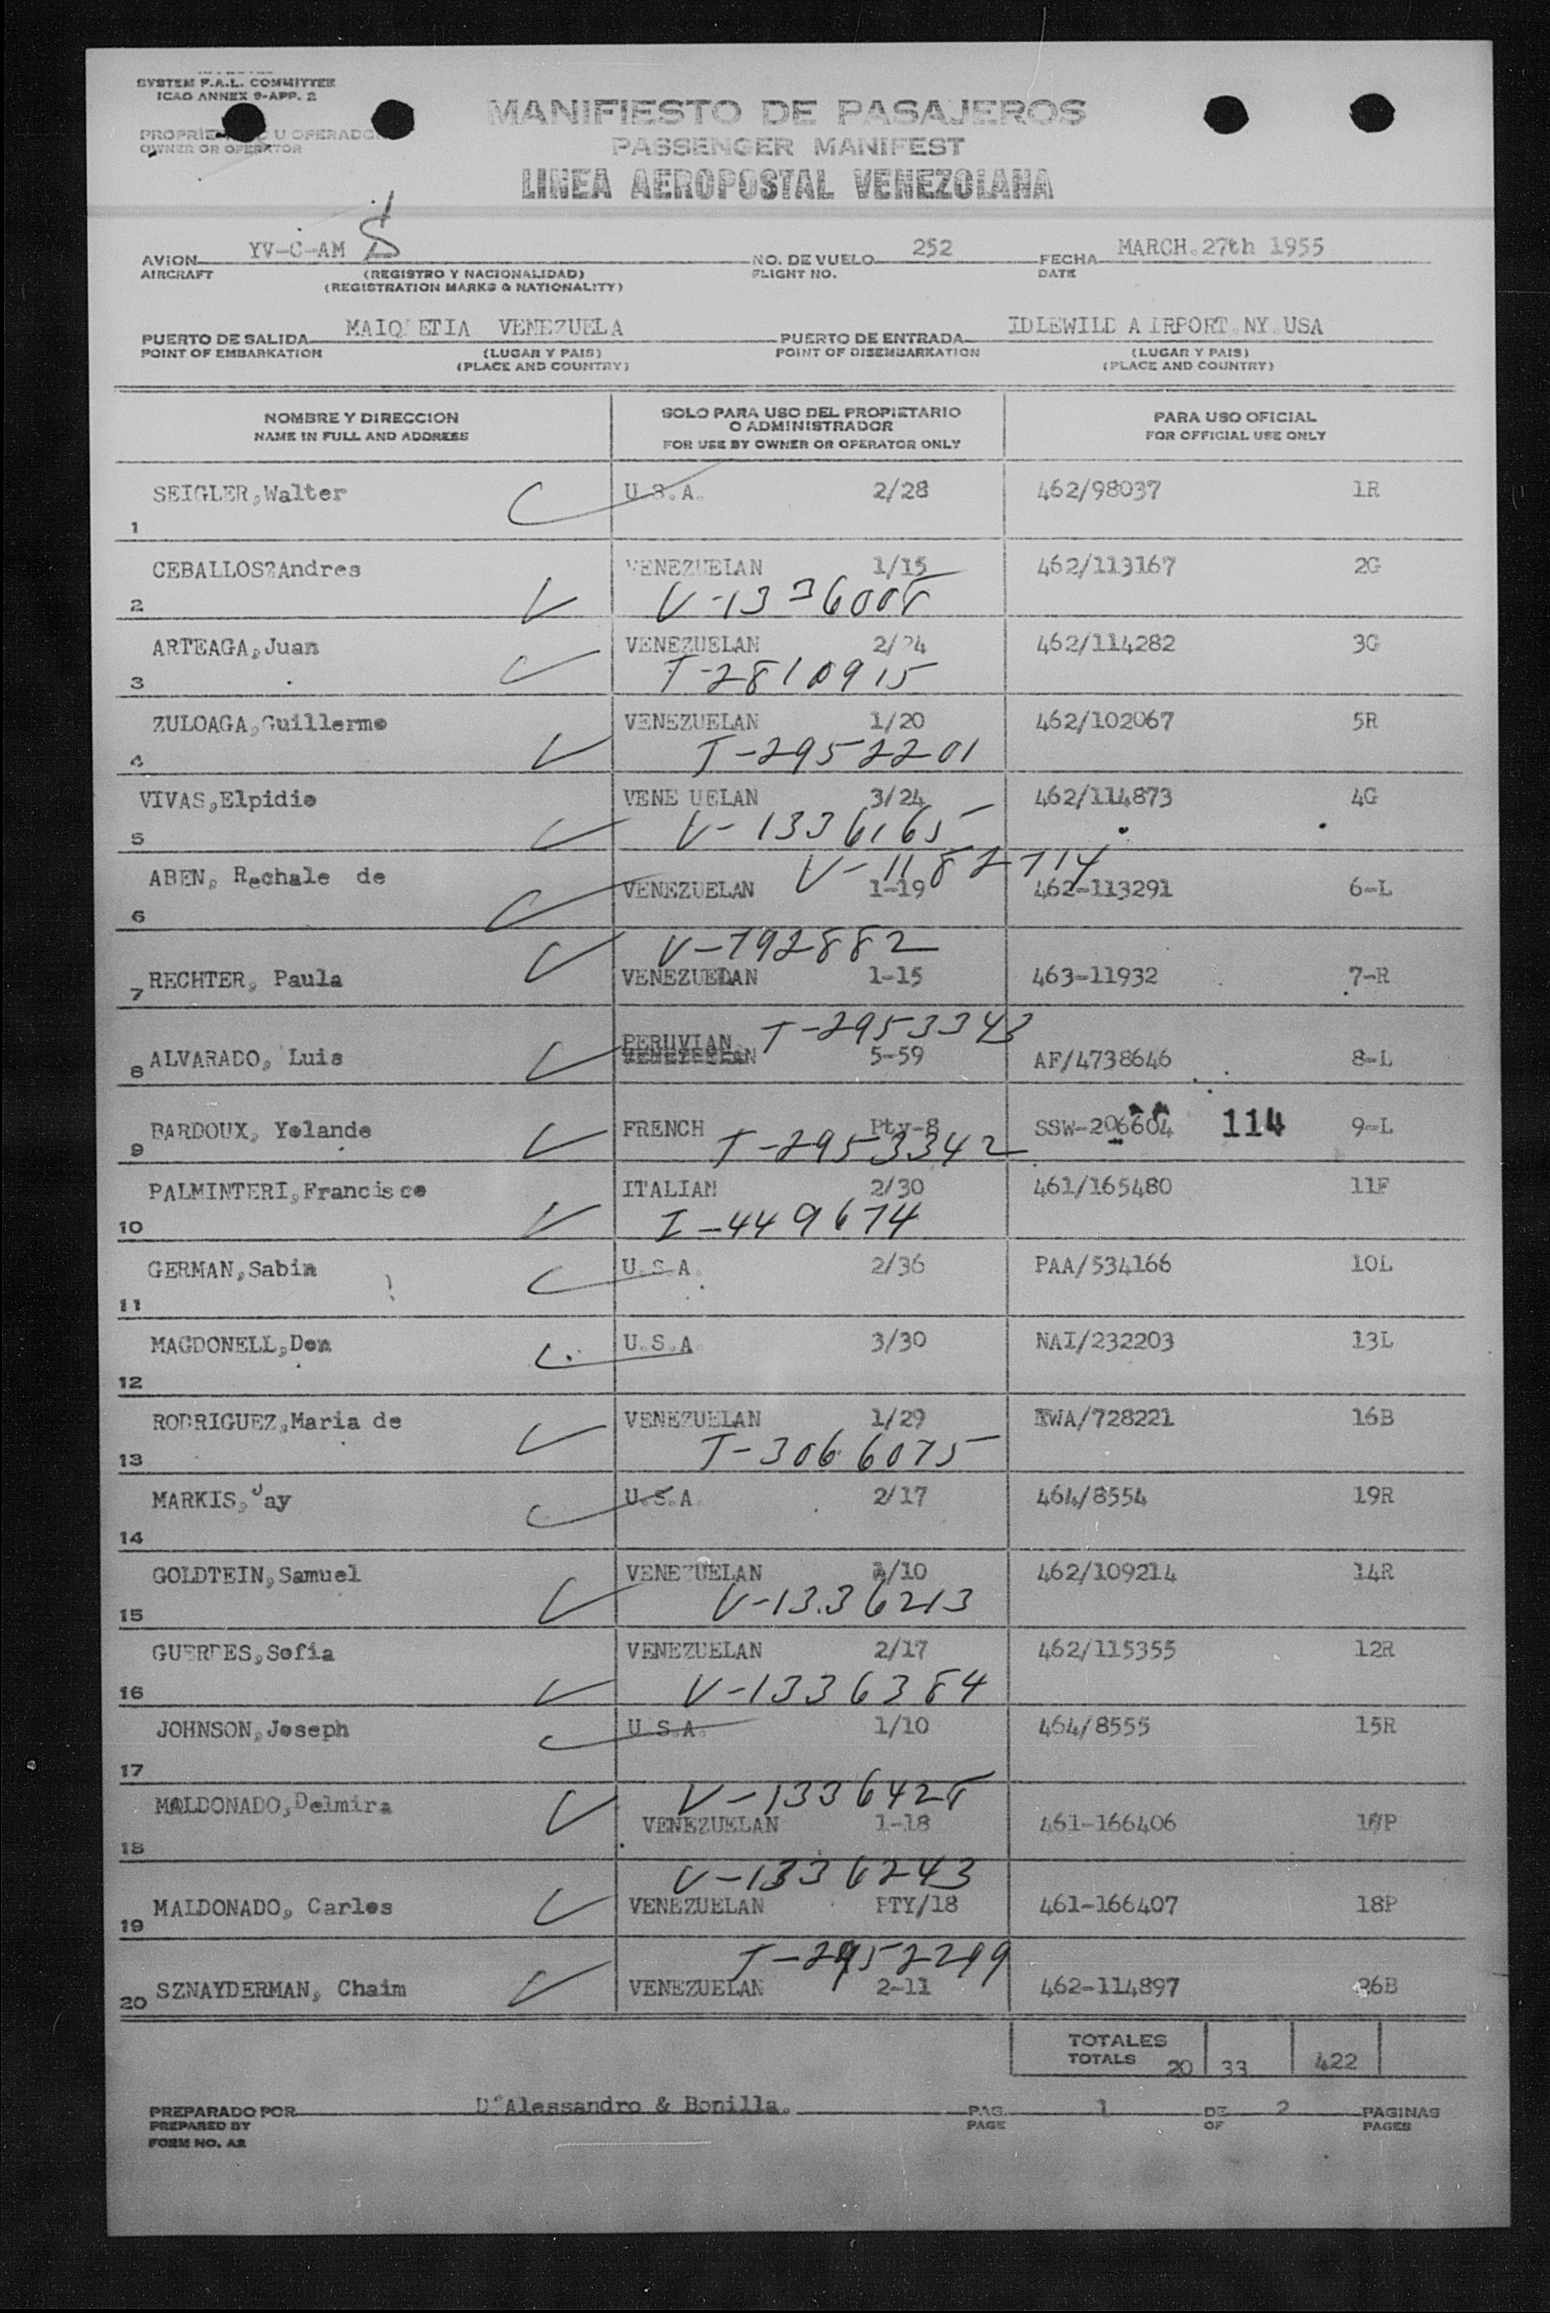 SYSTEM F.A.L. COMMITTEE
ICAO ANNEX 9-APP. 2
MANIFIESTO DE PASAJEROS
PROPRIE U OPERADOR
OWNER OR OPERATOR
PASSENGER MANIFEST
LINEA AEROPOSTAL VENEZOLANA
AVION YV-C-AM S NO. DE VUELO 252 FECHA MARCH.27th 1955
AIRCRAFT (REGISTRO Y NACIONALIDAD) FLIGHT NO. DATE
(REGISTRATION MARKS & NATIONALITY)
PUERTO DE SALIDA MAIQUETIA VENEZUELA PUERTO DE ENTRADA IDLEWILD A IRPORT.NY.USA
POINT OF EMBARKATION (LUGAR Y PAIS) POINT OF DISEMBARKATION (LUGAR Y PAIS)
(PLACE AND COUNTRY) (PLACE AND COUNTRY)
NOMBRE Y DIRECCION SOLO PARA USO DEL PROPIETARIO O ADMINISTRADOR PARA USO OFICIAL
NAME IN FULL AND ADDRESS FOR USE BY OWNER OR OPERATOR ONLY FOR OFFICIAL USE ONLY
SEIGLER,Walter U.S.A. 2/28 462/98037 1R
1
CEBALLOS?Andres VENEZUELAN 1/15 462/113167 2G
2 V-1336008
ARTEAGA,Juan VENEZUELAN 2/24 462/114282 3G
3 T-2810915
ZULOAGA,Guillermo VENEZUELAN 1/20 462/102067 5R
4 T-2952201
VIVAS,Elpidio VENE UELAN 3/24 462/114873 4G
5 V-1336165
V-1182714
ABEN, Rechale de VENEZUELAN 1-19 462-113291 6-L
6
V-792882
7 RECHTER, Paula VENEZUELAN 1-15 463-11932 7-R
PERUVIAN T-2953343
8 ALVARADO, Luis VENEZUELAN 5-59 AF/4738646 8-L
9 BARDOUX, Yolande FRENCH Pty-8 SSW-206604 114 9-L
T-2953342
PALMINTERI,Francisco ITALIAN 2/30 461/165480 11F
10 I-449674
GERMAN,Sabin U.S.A. 2/36 PAA/534166 10L
11
MAGDONELL,Don U.S.A. 3/30 NAI/232203 13L
12
RODRIGUEZ,Maria de VENEZUELAN 1/29 TWA/728221 16B
13 T-3066075
MARKIS,Jay U.S.A. 2/17 464/8554 19R
14
GOLDTEIN,Samuel VENEZUELAN 1/10 462/109214 14R
15 V-1336213
GUERDES,Sofia VENEZUELAN 2/17 462/115355 12R
16 V-1336384
JOHNSON,Joseph U.S.A. 1/10 464/8555 15R
17
V-1336428
MALDONADO,Delmira VENEZUELAN 1-18 461-166406 17P
18
V-1336243
19 MALDONADO, Carlos VENEZUELAN PTY/18 461-166407 18P
T-2952299
20 SZNAYDERMAN, Chaim VENEZUELAN 2-11 462-114897 26B
TOTALES
TOTALS 20 33 422
PREPARADO POR D'Alessandro & Bonilla. PAG. 1 DE 2 PAGINAS
PREPARED BY PAGE OF PAGES
FORM NO. AR